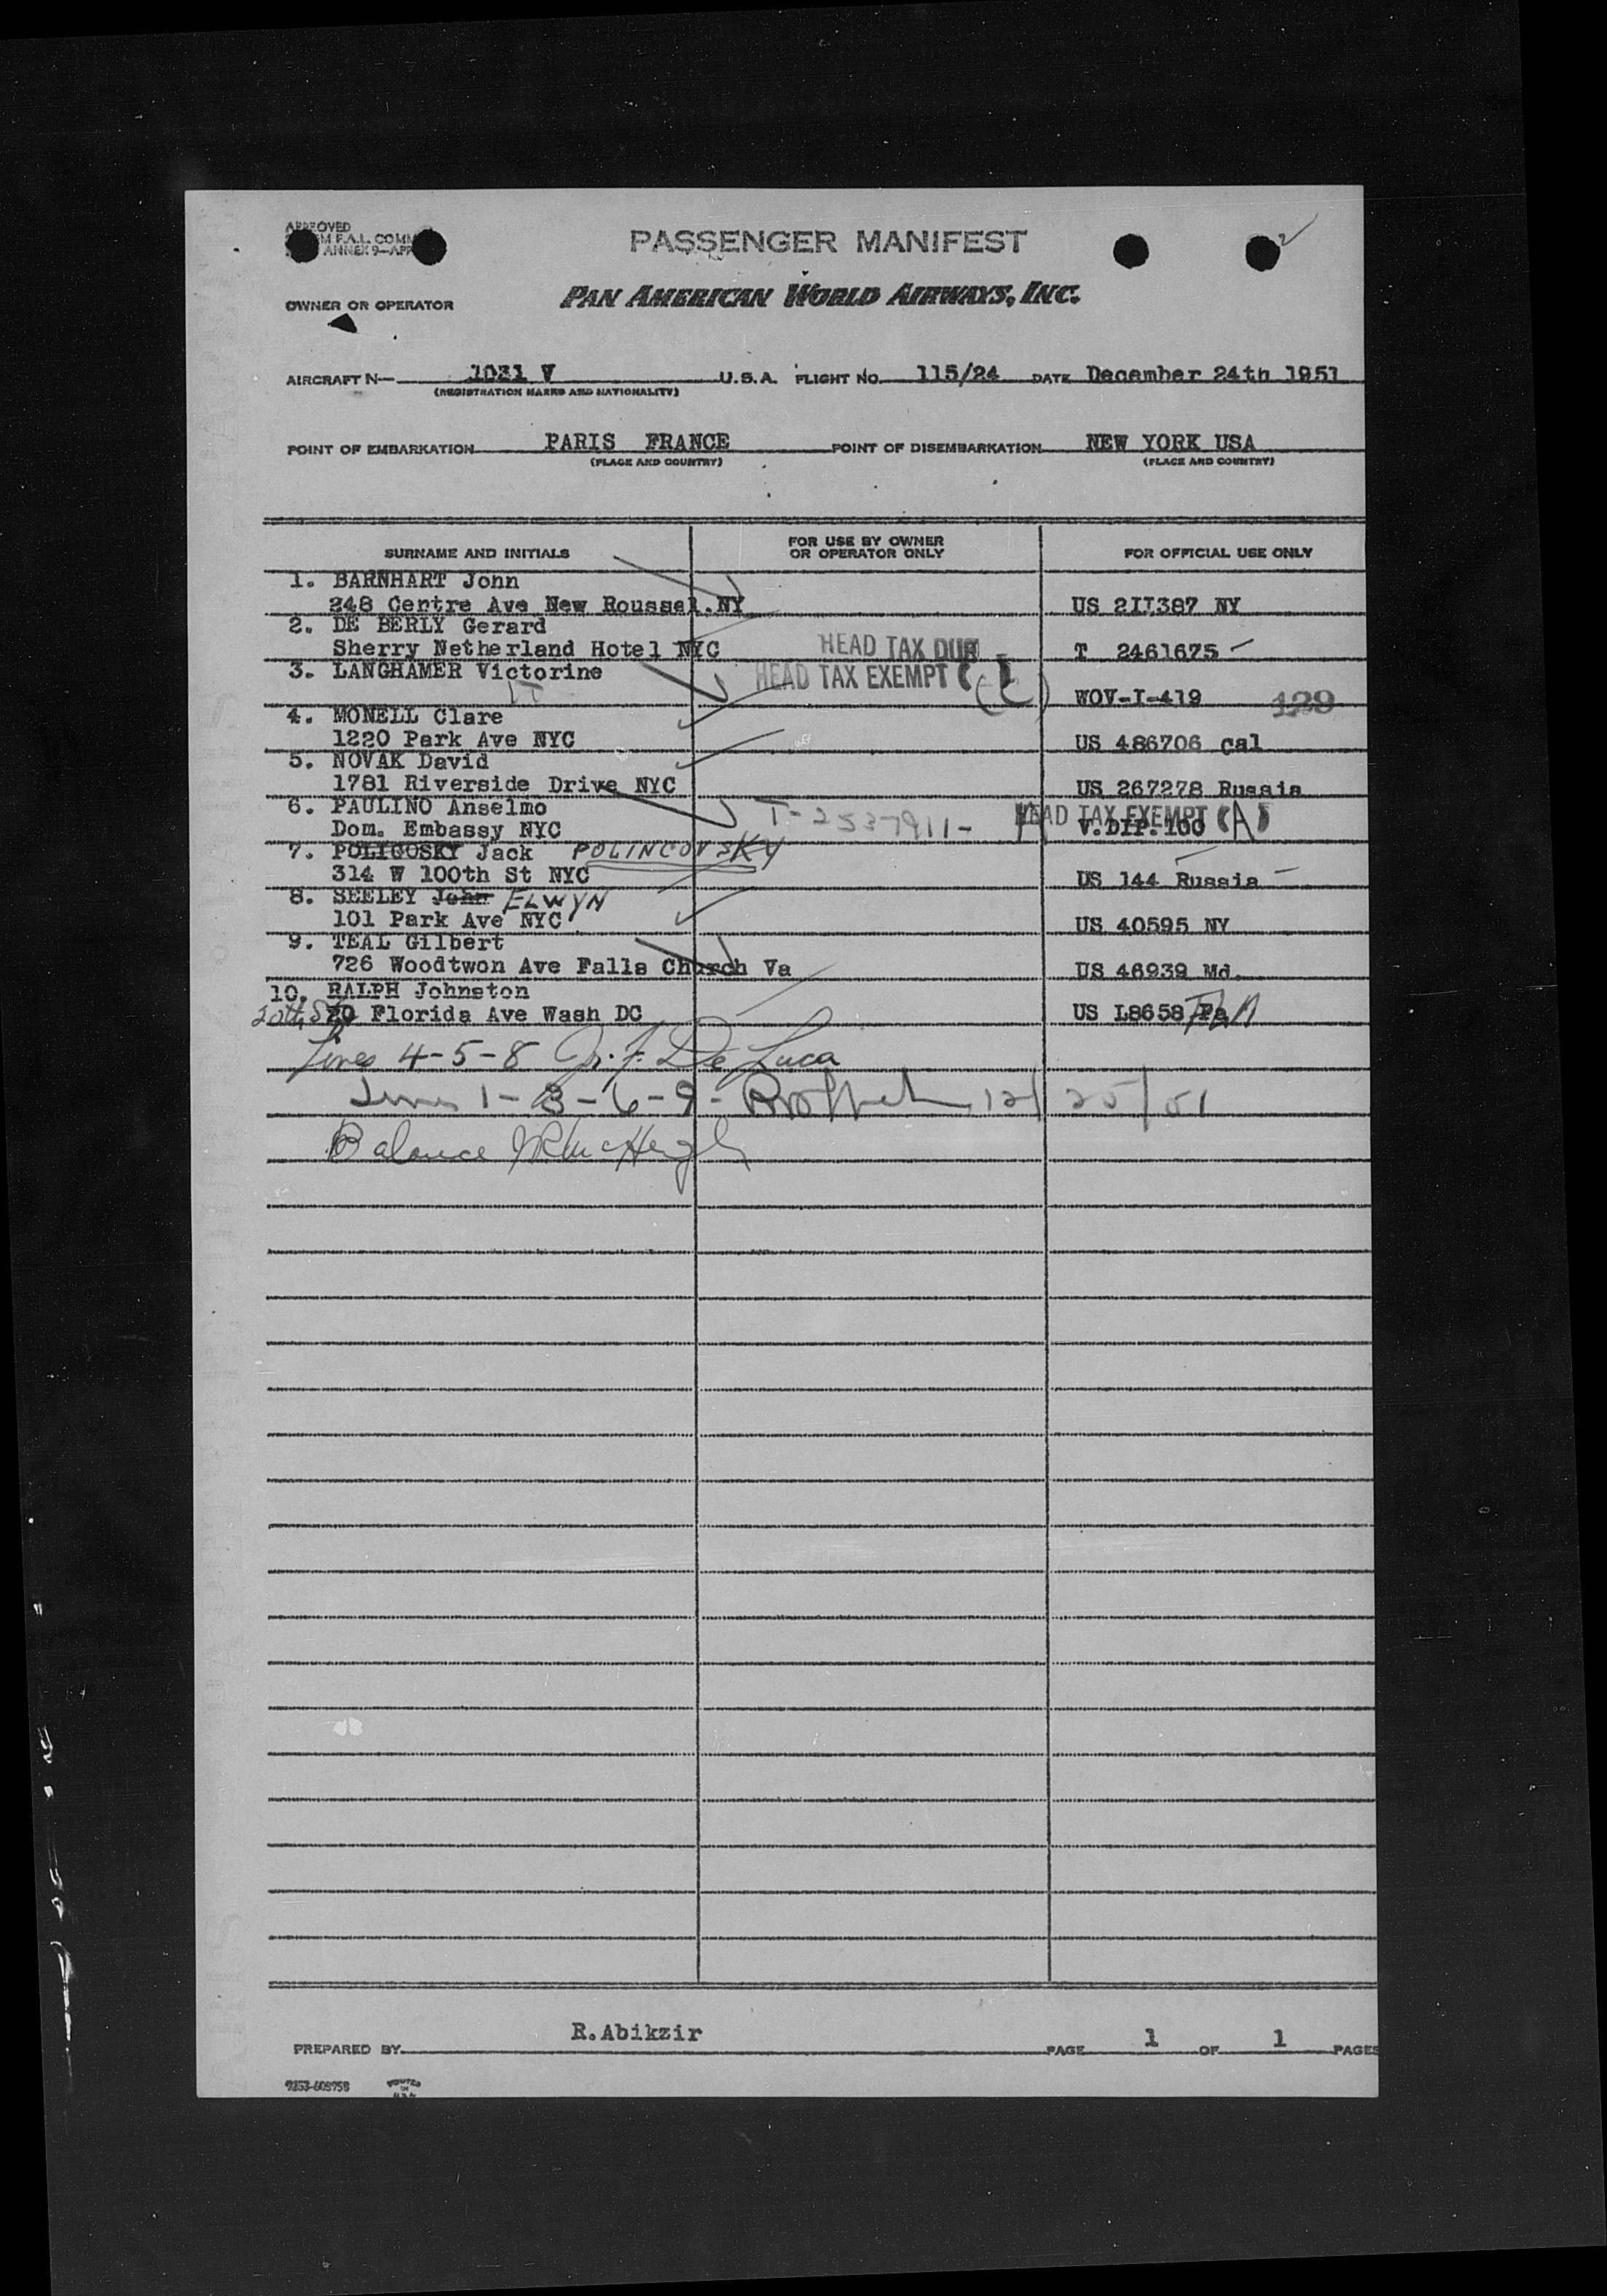 APPROVED
F.A.L. COMM
ANNEX 9—APP
PASSENGER MANIFEST
2
OWNER OR OPERATOR
PAN AMERICAN WORLD AIRWAYS, INC.
AIRCRAFT N— 1031 V U.S.A. FLIGHT NO. 115/24 DATE December 24th 1951
(REGISTRATION MARKS AND NATIONALITY)
POINT OF EMBARKATION PARIS FRANCE POINT OF DISEMBARKATION NEW YORK USA
(PLACE AND COUNTRY) (PLACE AND COUNTRY)
SURNAME AND INITIALS FOR USE BY OWNER OR OPERATOR ONLY FOR OFFICIAL USE ONLY
1. BARNHART John
248 Centre Ave New Roussel.NY US 2II387 NY
2. DE BERLY Gerard
Sherry Netherland Hotel NYC HEAD TAX DUE T 2461675
3. LANGHAMER Victorine HEAD TAX EXEMPT
WOV-I-419 129
4. MONELL Clare
1220 Park Ave NYC US 486706 cal
5. NOVAK David
1781 Riverside Drive NYC US 267278 Russia
6. PAULINO Anselmo T-2537911- HEAD TAX EXEMPT (A)
Dom. Embassy NYC V.DIP.100
7. POLIGOSKY Jack POLINCOVSKY
314 W 100th St NYC US 144 Russia
8. SEELEY John ELWYN
101 Park Ave NYC US 40595 NY
9. TEAL Gilbert
726 Woodtwon Ave Falls Church Va US 46939 Md.
10. RALPH Johnston
20th St 20 Florida Ave Wash DC US L8658 Pa
Lines 4-5-8 De Luca
Lines 1-3-6-9- 12/25/51
Balance
R.Abikzir
PREPARED BY PAGE 1 OF 1 PAGES
PRINTED IN U.S.A.